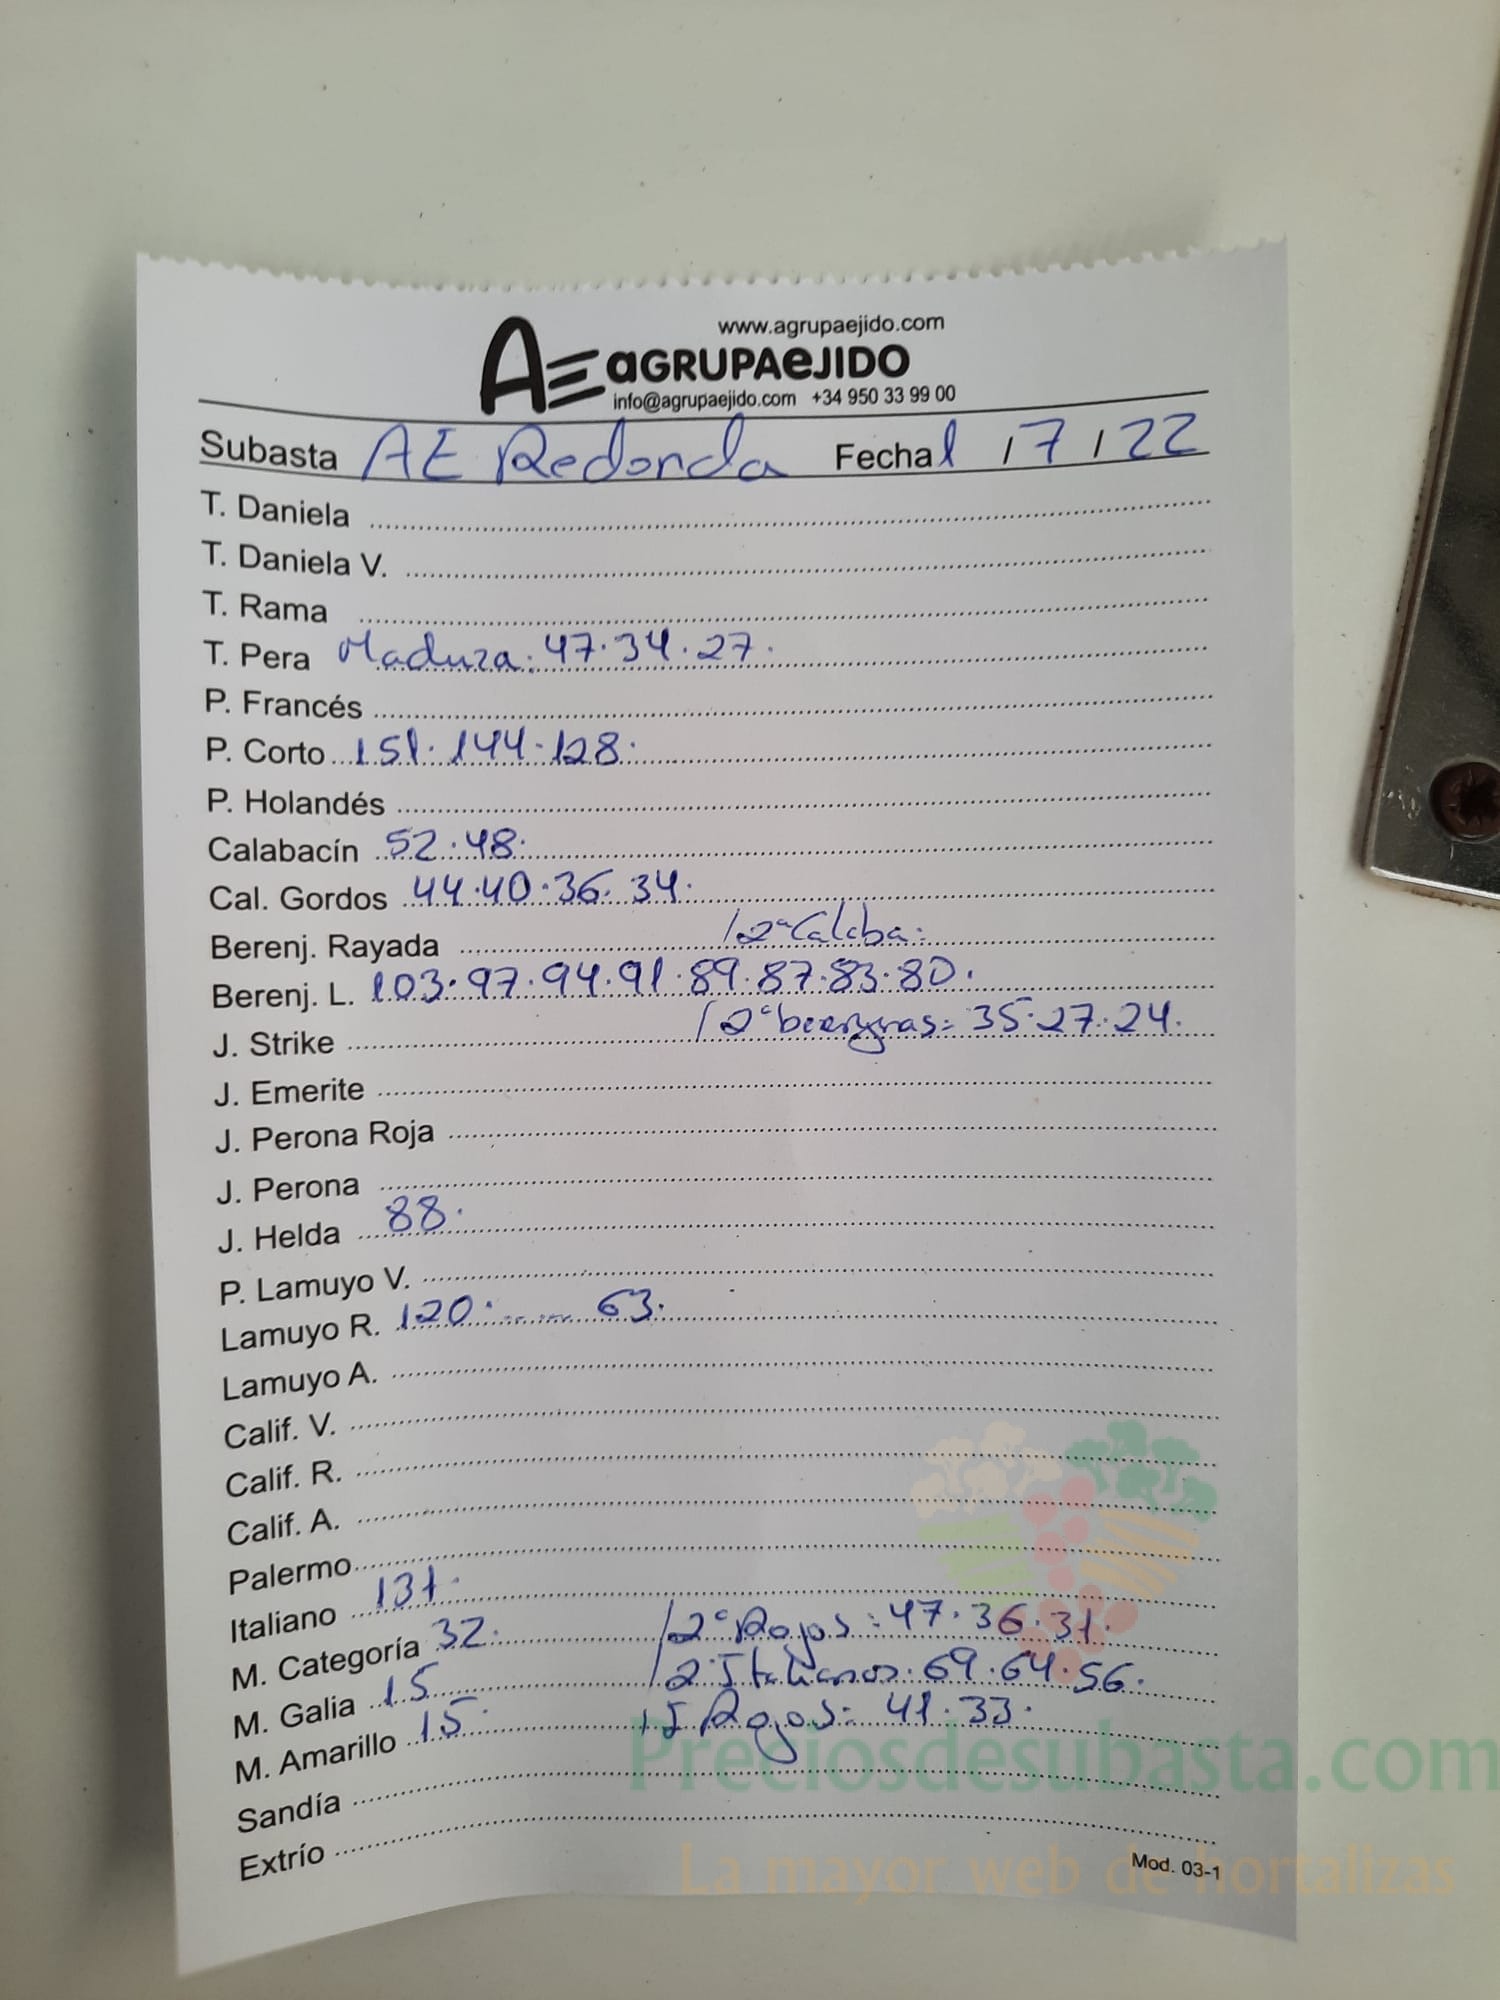 www.agrupaejido.com
AE aGRUPAeJIDO
info@agrupaejido.com +34 950 33 99 00
Subasta AE Redonda Fecha 1 / 7 / 22
T. Daniela
T. Daniela V.
T. Rama
T. Pera Madura: 47.34.27.
P. Francés
P. Corto 151.144.128.
P. Holandés
Calabacín 52.48.
Cal. Gordos 44.40.36.34.
Berenj. Rayada /2ª Calaba:
Berenj. L. 103.97.94.91.89.87.83.80.
J. Strike /2ª = 35.27.24.
J. Emerite
J. Perona Roja
J. Perona
J. Helda 88.
P. Lamuyo V.
Lamuyo R. 120. ...... 63.
Lamuyo A.
Calif. V.
Calif. R.
Calif. A.
Palermo
Italiano 131.
M. Categoría 32. /2ª Rojos: 47.36.31.
M. Galia 15 /2ª Italianos: 69.64.56.
M. Amarillo 15. Rojos: 41.33.
Sandía
Extrío
Mod. 03-1
Preciosdesubasta.com
La mayor web de hortalizas